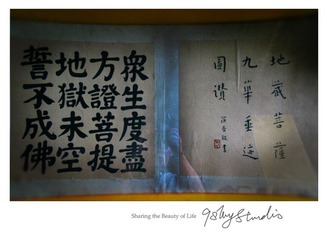 地藏菩薩
九華垂迹
圖讚
衆生度盡
方證菩提
地獄未空
誓不成佛
Sharing the Beauty of Life